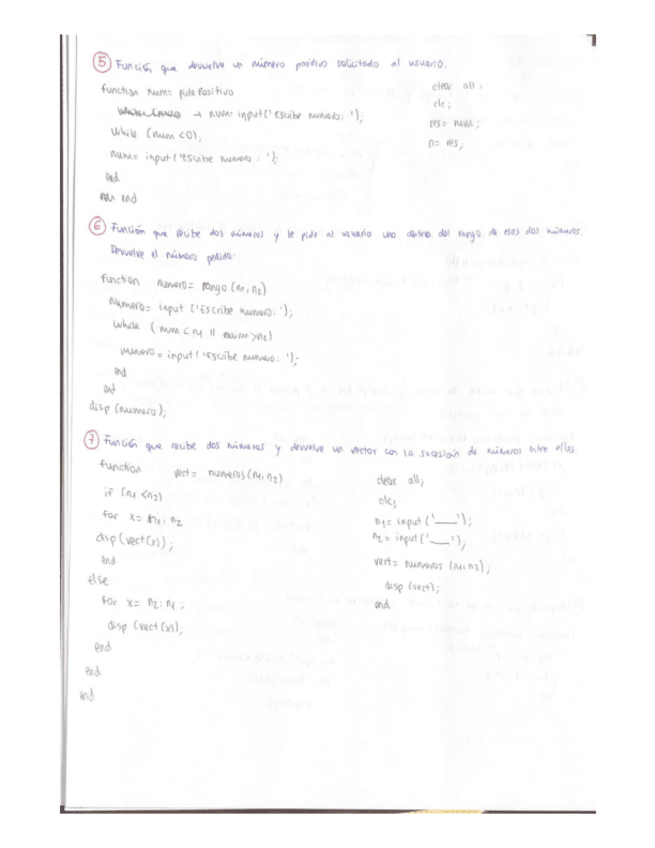 5 Función que devuelve un número positivo solicitado al usuario.
function num= pidePositivo
→ num= input('Escribe numero: ');
while (num <0);
num= input('Escribe numero: ');
end
end
clear all;
clc;
res= num;
n= res;
6 Función que recibe dos números y le pide al usuario uno dentro del rango de esos dos números.
Devuelve el número pedido.
function numero= rango (n1, n2)
numero= input ('Escribe numero: ');
while (num < n1 || num > n2)
numero = input('Escribe numero: ');
end
end
disp (numero);
7 Función que recibe dos números y devuelve un vector con la sucesión de números entre ellos.
function vect= numeros(n1, n2)
if (n1 < n2)
for x= n1: n2
disp (vect(x));
end
else
for x= n2: n1;
disp (vect(x));
end
end
end
clear all;
clc;
n1= input ('___');
n2= input ('___');
vect= numeros (n1, n2);
disp (vect);
end